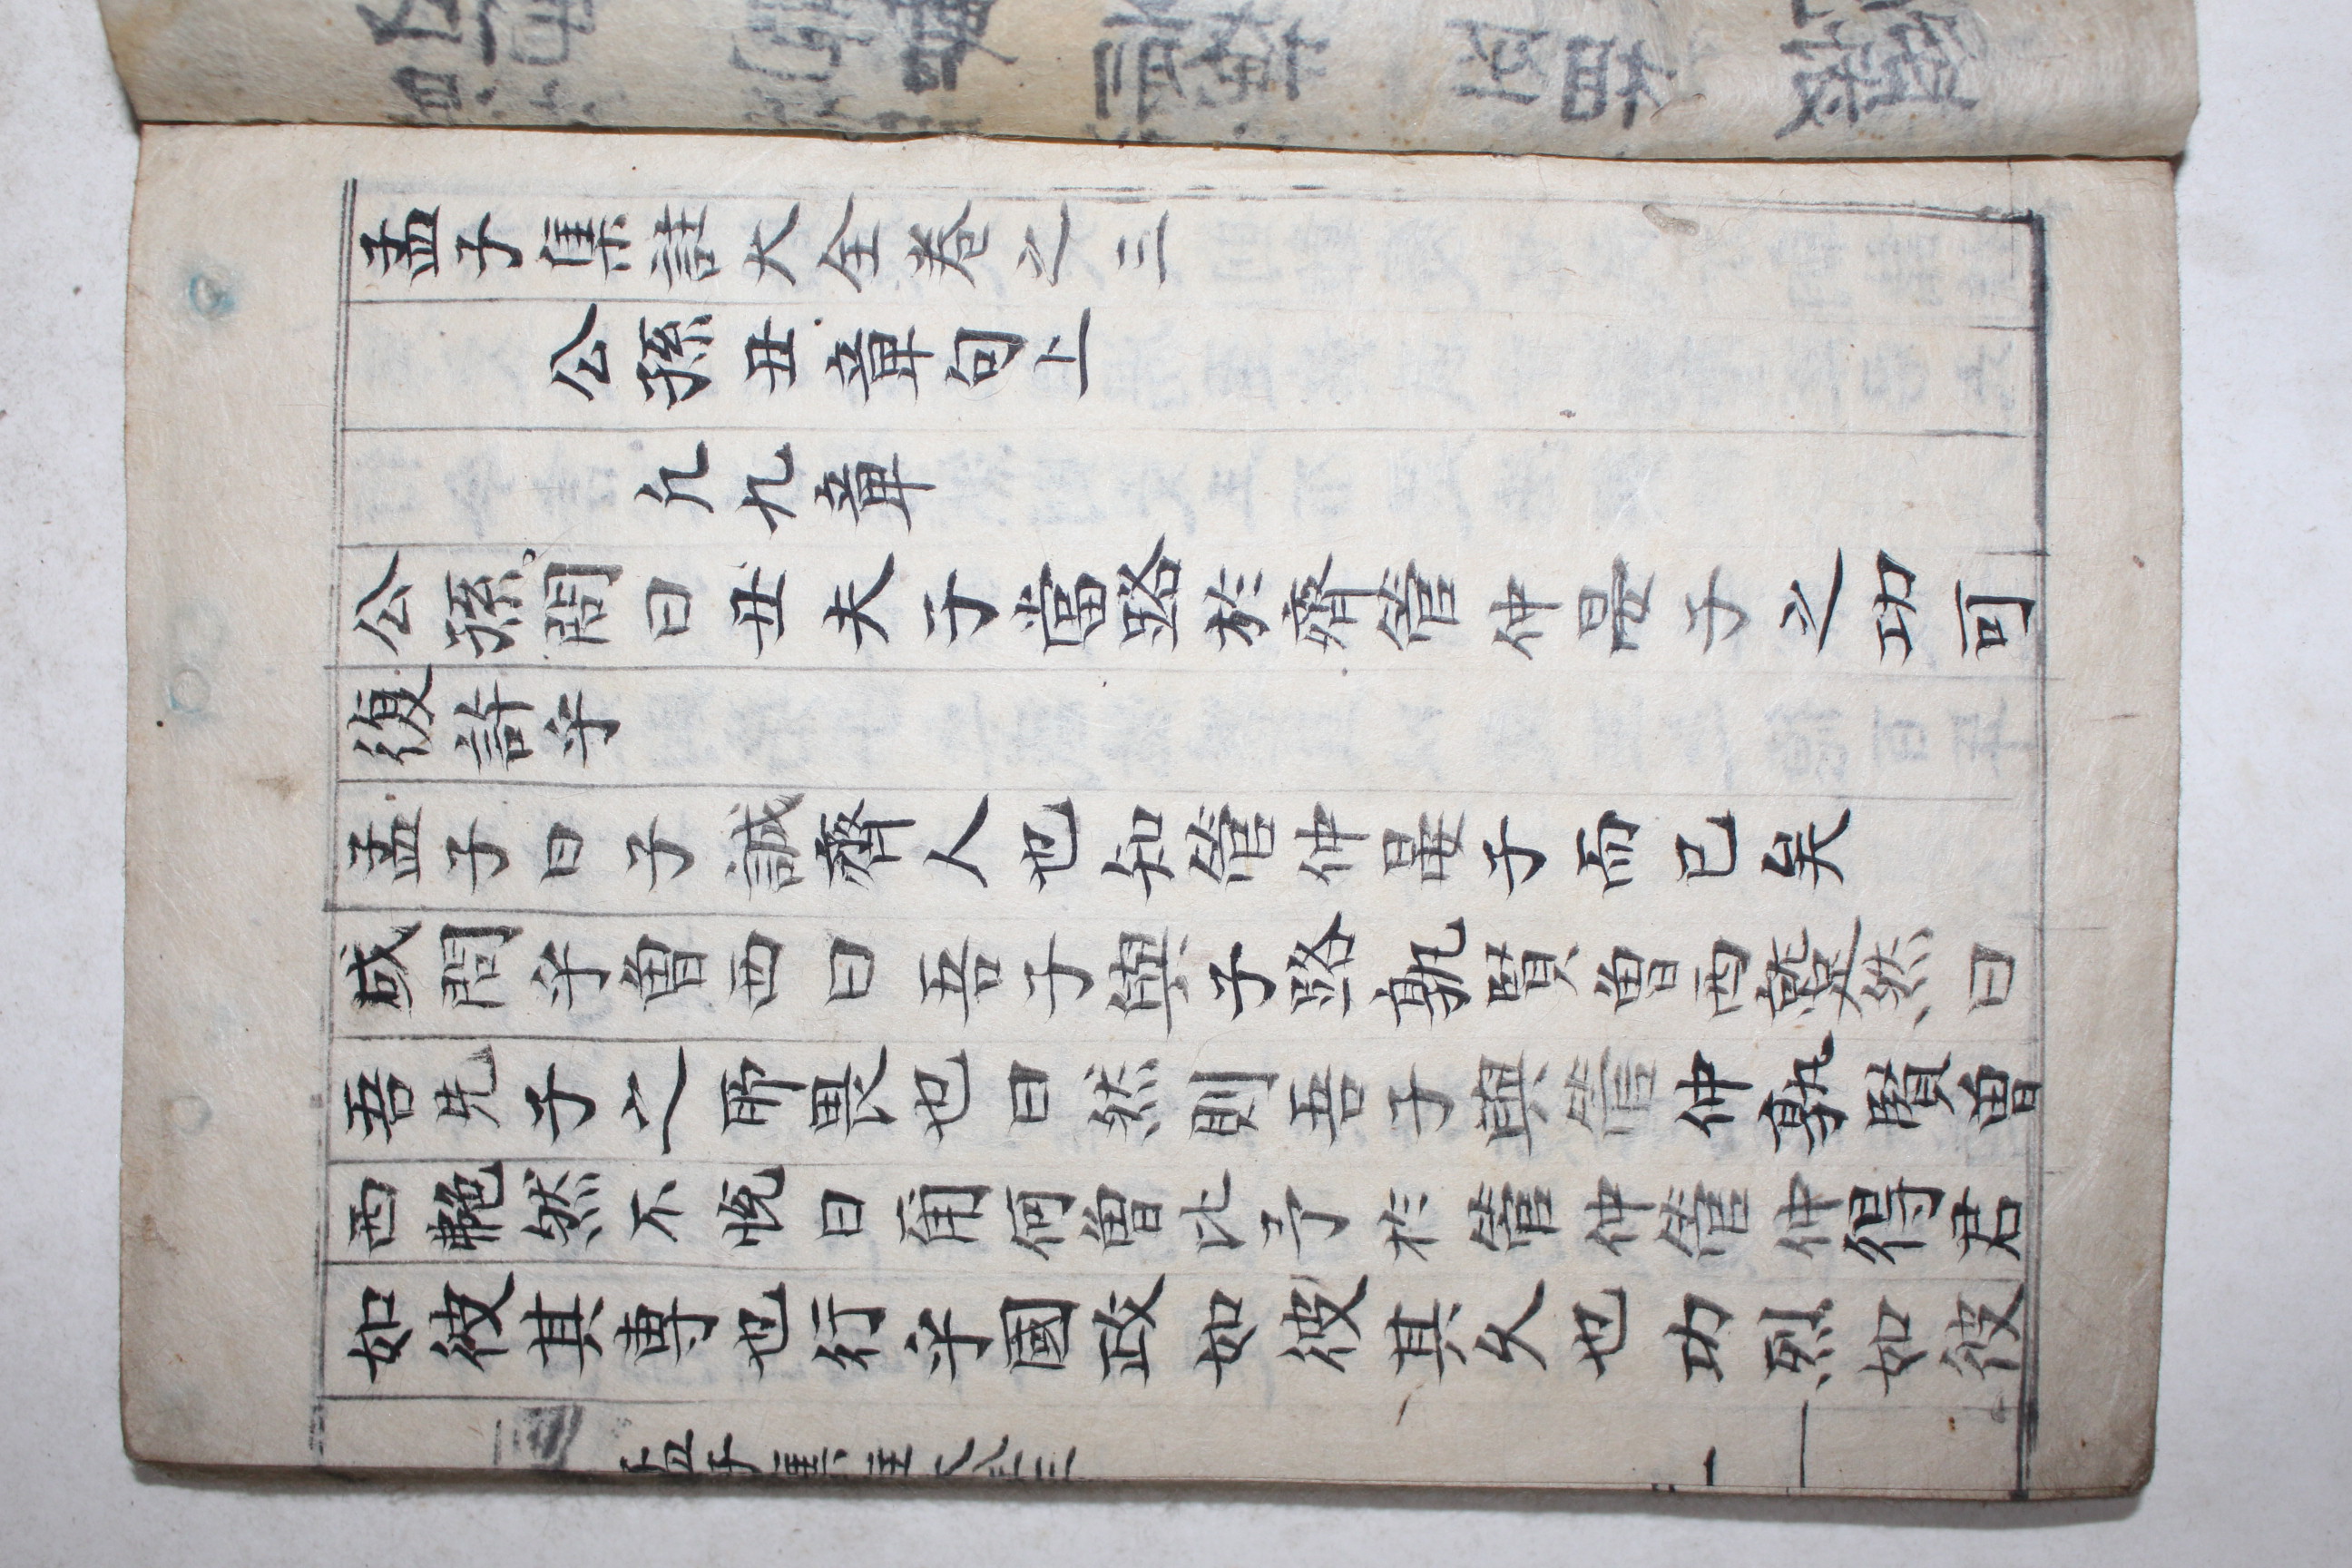 孟子集註大全卷之三
公孫丑章句上
凢九章
公孫問曰丑夫子當路於齊管仲晏子之功可
復許乎
孟子曰子誠齊人也知管仲晏子而已矣
或問乎曾西曰吾子與子路孰賢曾西蹵然曰
吾先子之所畏也曰然則吾子與管仲孰賢曾
西艴然不悅曰爾何曾比予於管仲管仲得君
如彼其專也行乎國政如彼其久也功烈如彼
孟子集註大全三